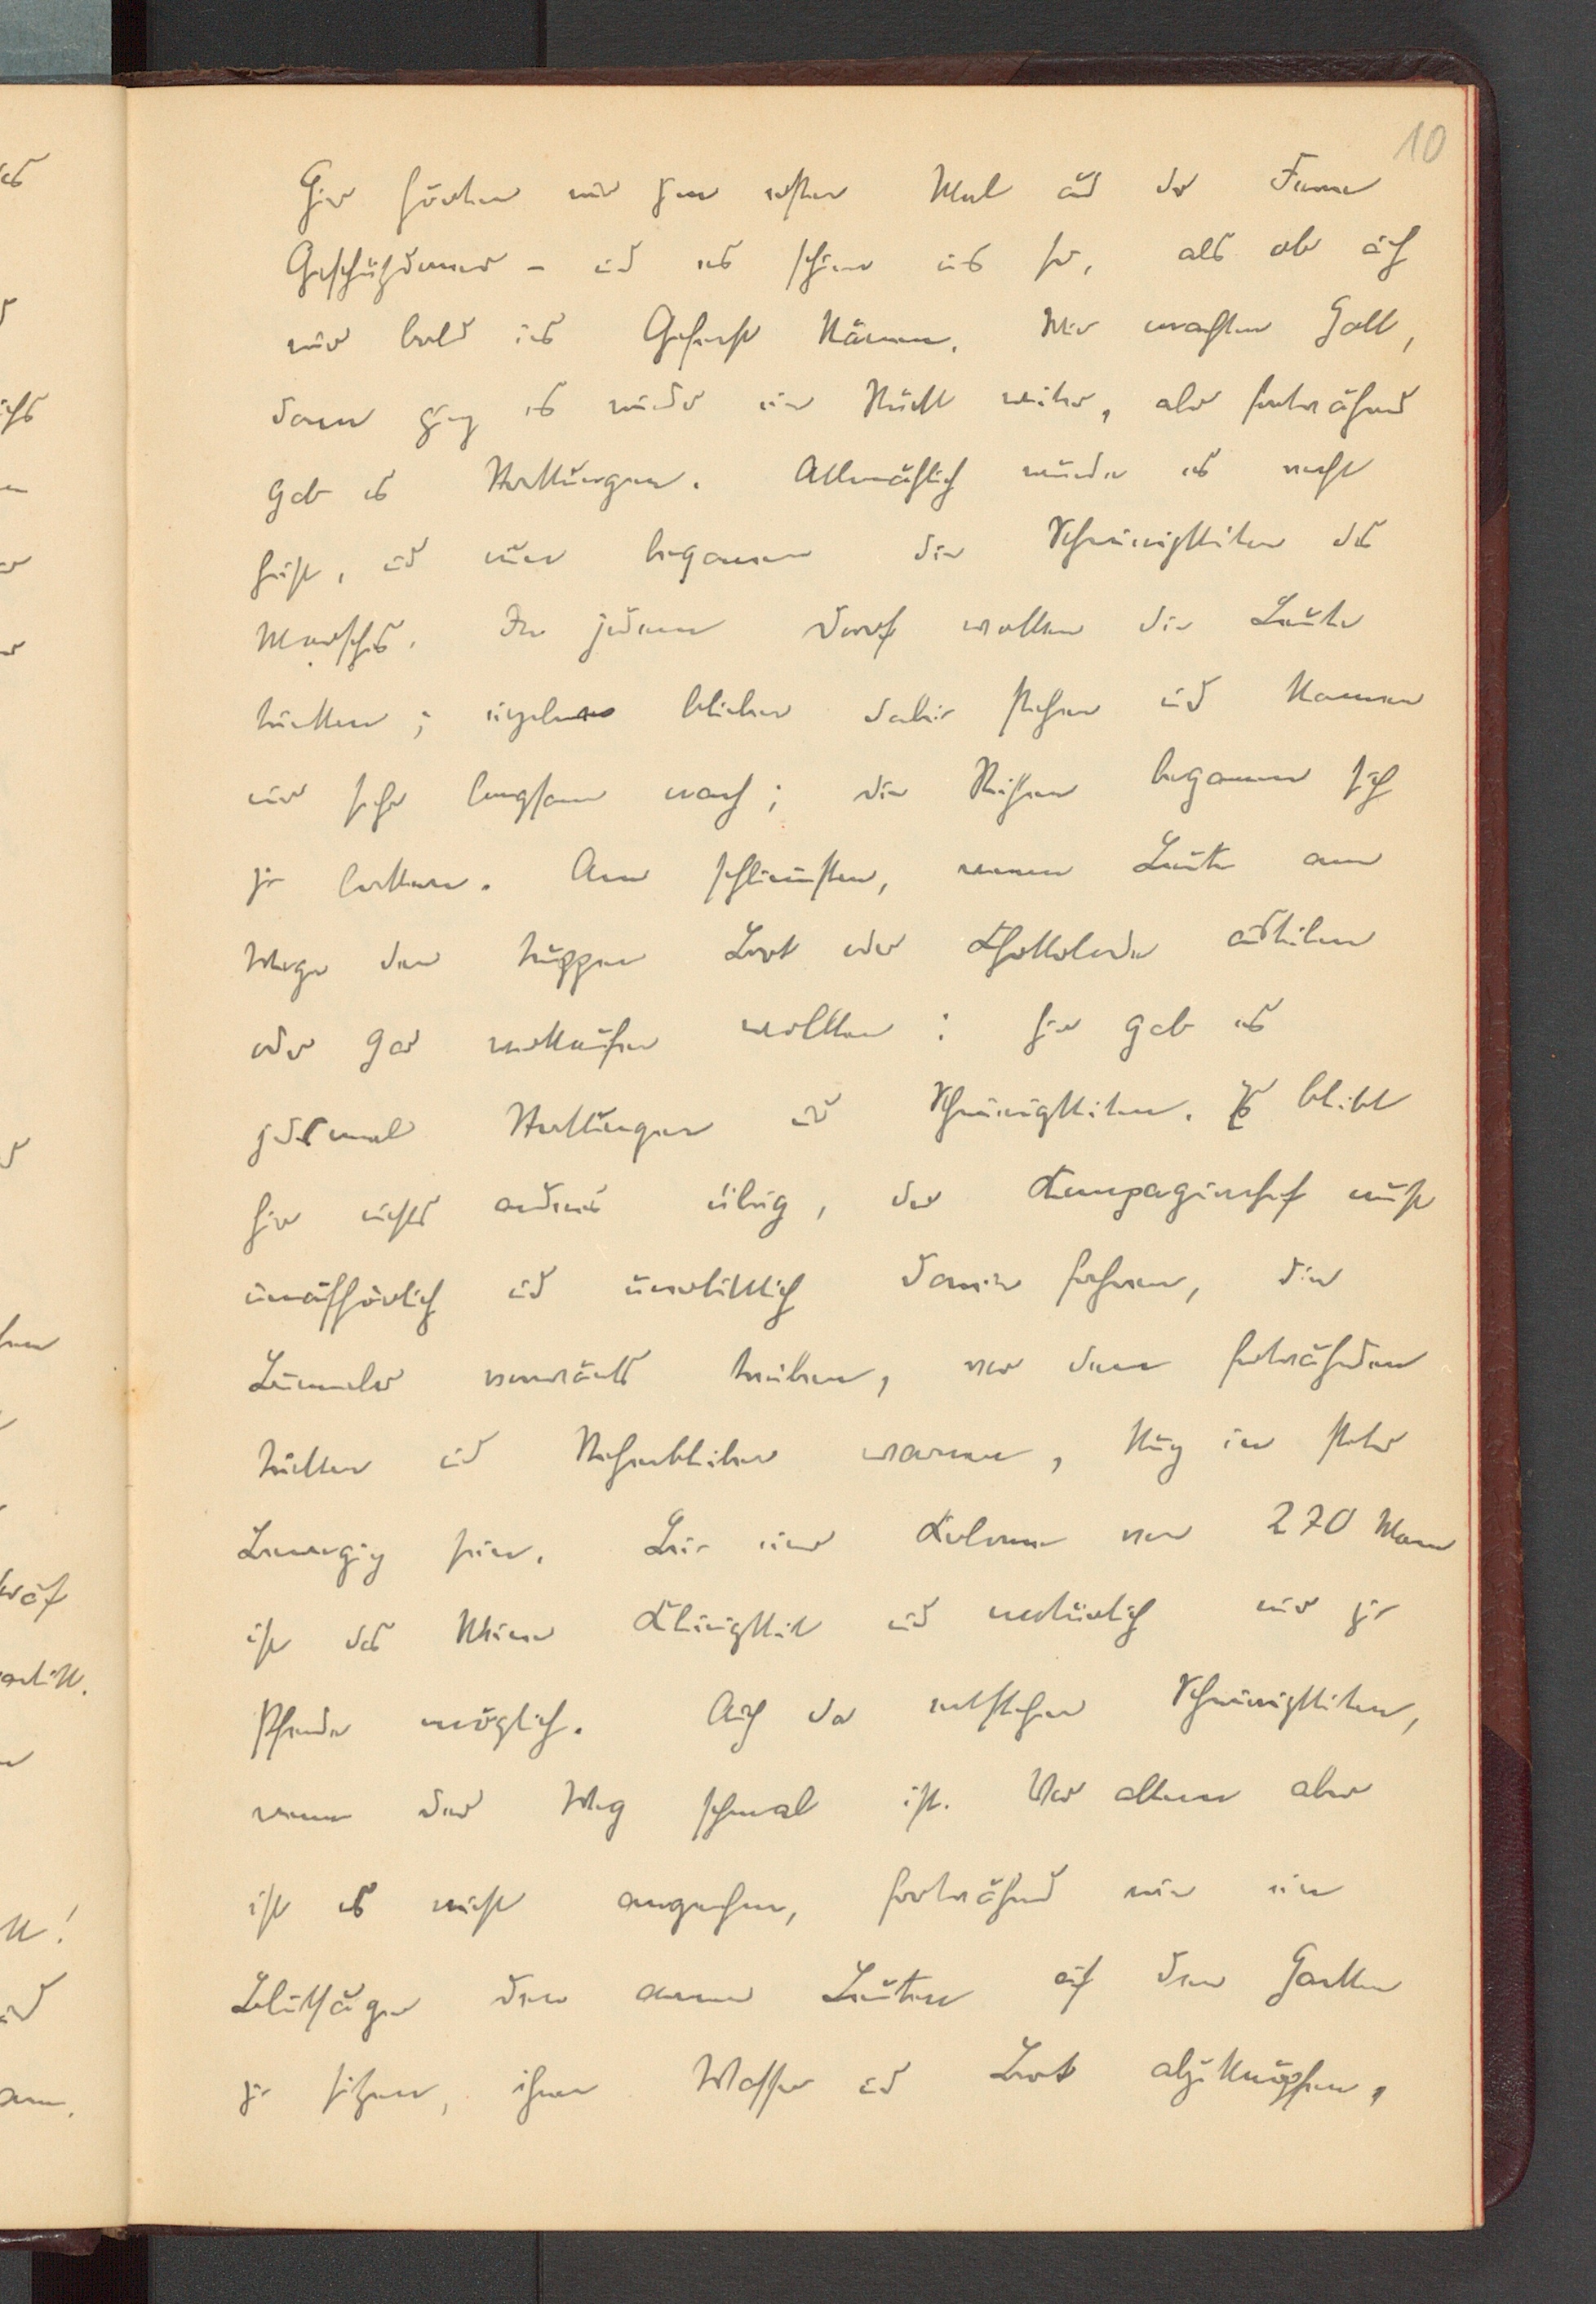 10
Hier hörten wir zum ersten Mal aus der Ferne
Geschützdonner – und es schien uns so, als ob auch
wir bald ins Gefecht kämen. Wir machten Halt,
dann ging es wieder ein Stück weiter, aber fortwährend
gab es Stockungen. Allmählich wurde es recht
heiß, und nun begannen die Schwierigkeiten des
Marsches. In jedem Dorf wollten die Leute
trinken; einzelne blieben dabei stehen und kamen
nur sehr langsam nach; die Reihen begannen sich
zu lockern. Am schlimmsten, wenn Leute am
Wege den Truppen Brot oder Schokolade austeilen
oder gar verkaufen wollten: hier gab es
jedesmal Stockungen und Schwierigkeiten. Es bleibt
hier nichts anderes übrig, der Kompagniechef muß
unaufhörlich und unerbittlich darin fahren, die
Bummler vorwärts treiben, vor dem fortwährenden
trinken und Stehenbleiben warnen, kurz in steter
Bewegung sein. Bei einer Kolonne von 270 Mann
ist das keine Kleinigkeit und natürlich nur zu
Pferde möglich. Auch da entstehen Schwierigkeiten,
wenn der Weg schmal ist. Vor allem aber
ist es nicht angenehm, fortwährend wie ein
Blutsauger den armen Leuten auf den Hacken
zu sitzen, ihnen Wasser und Brot abzuknöpfen,